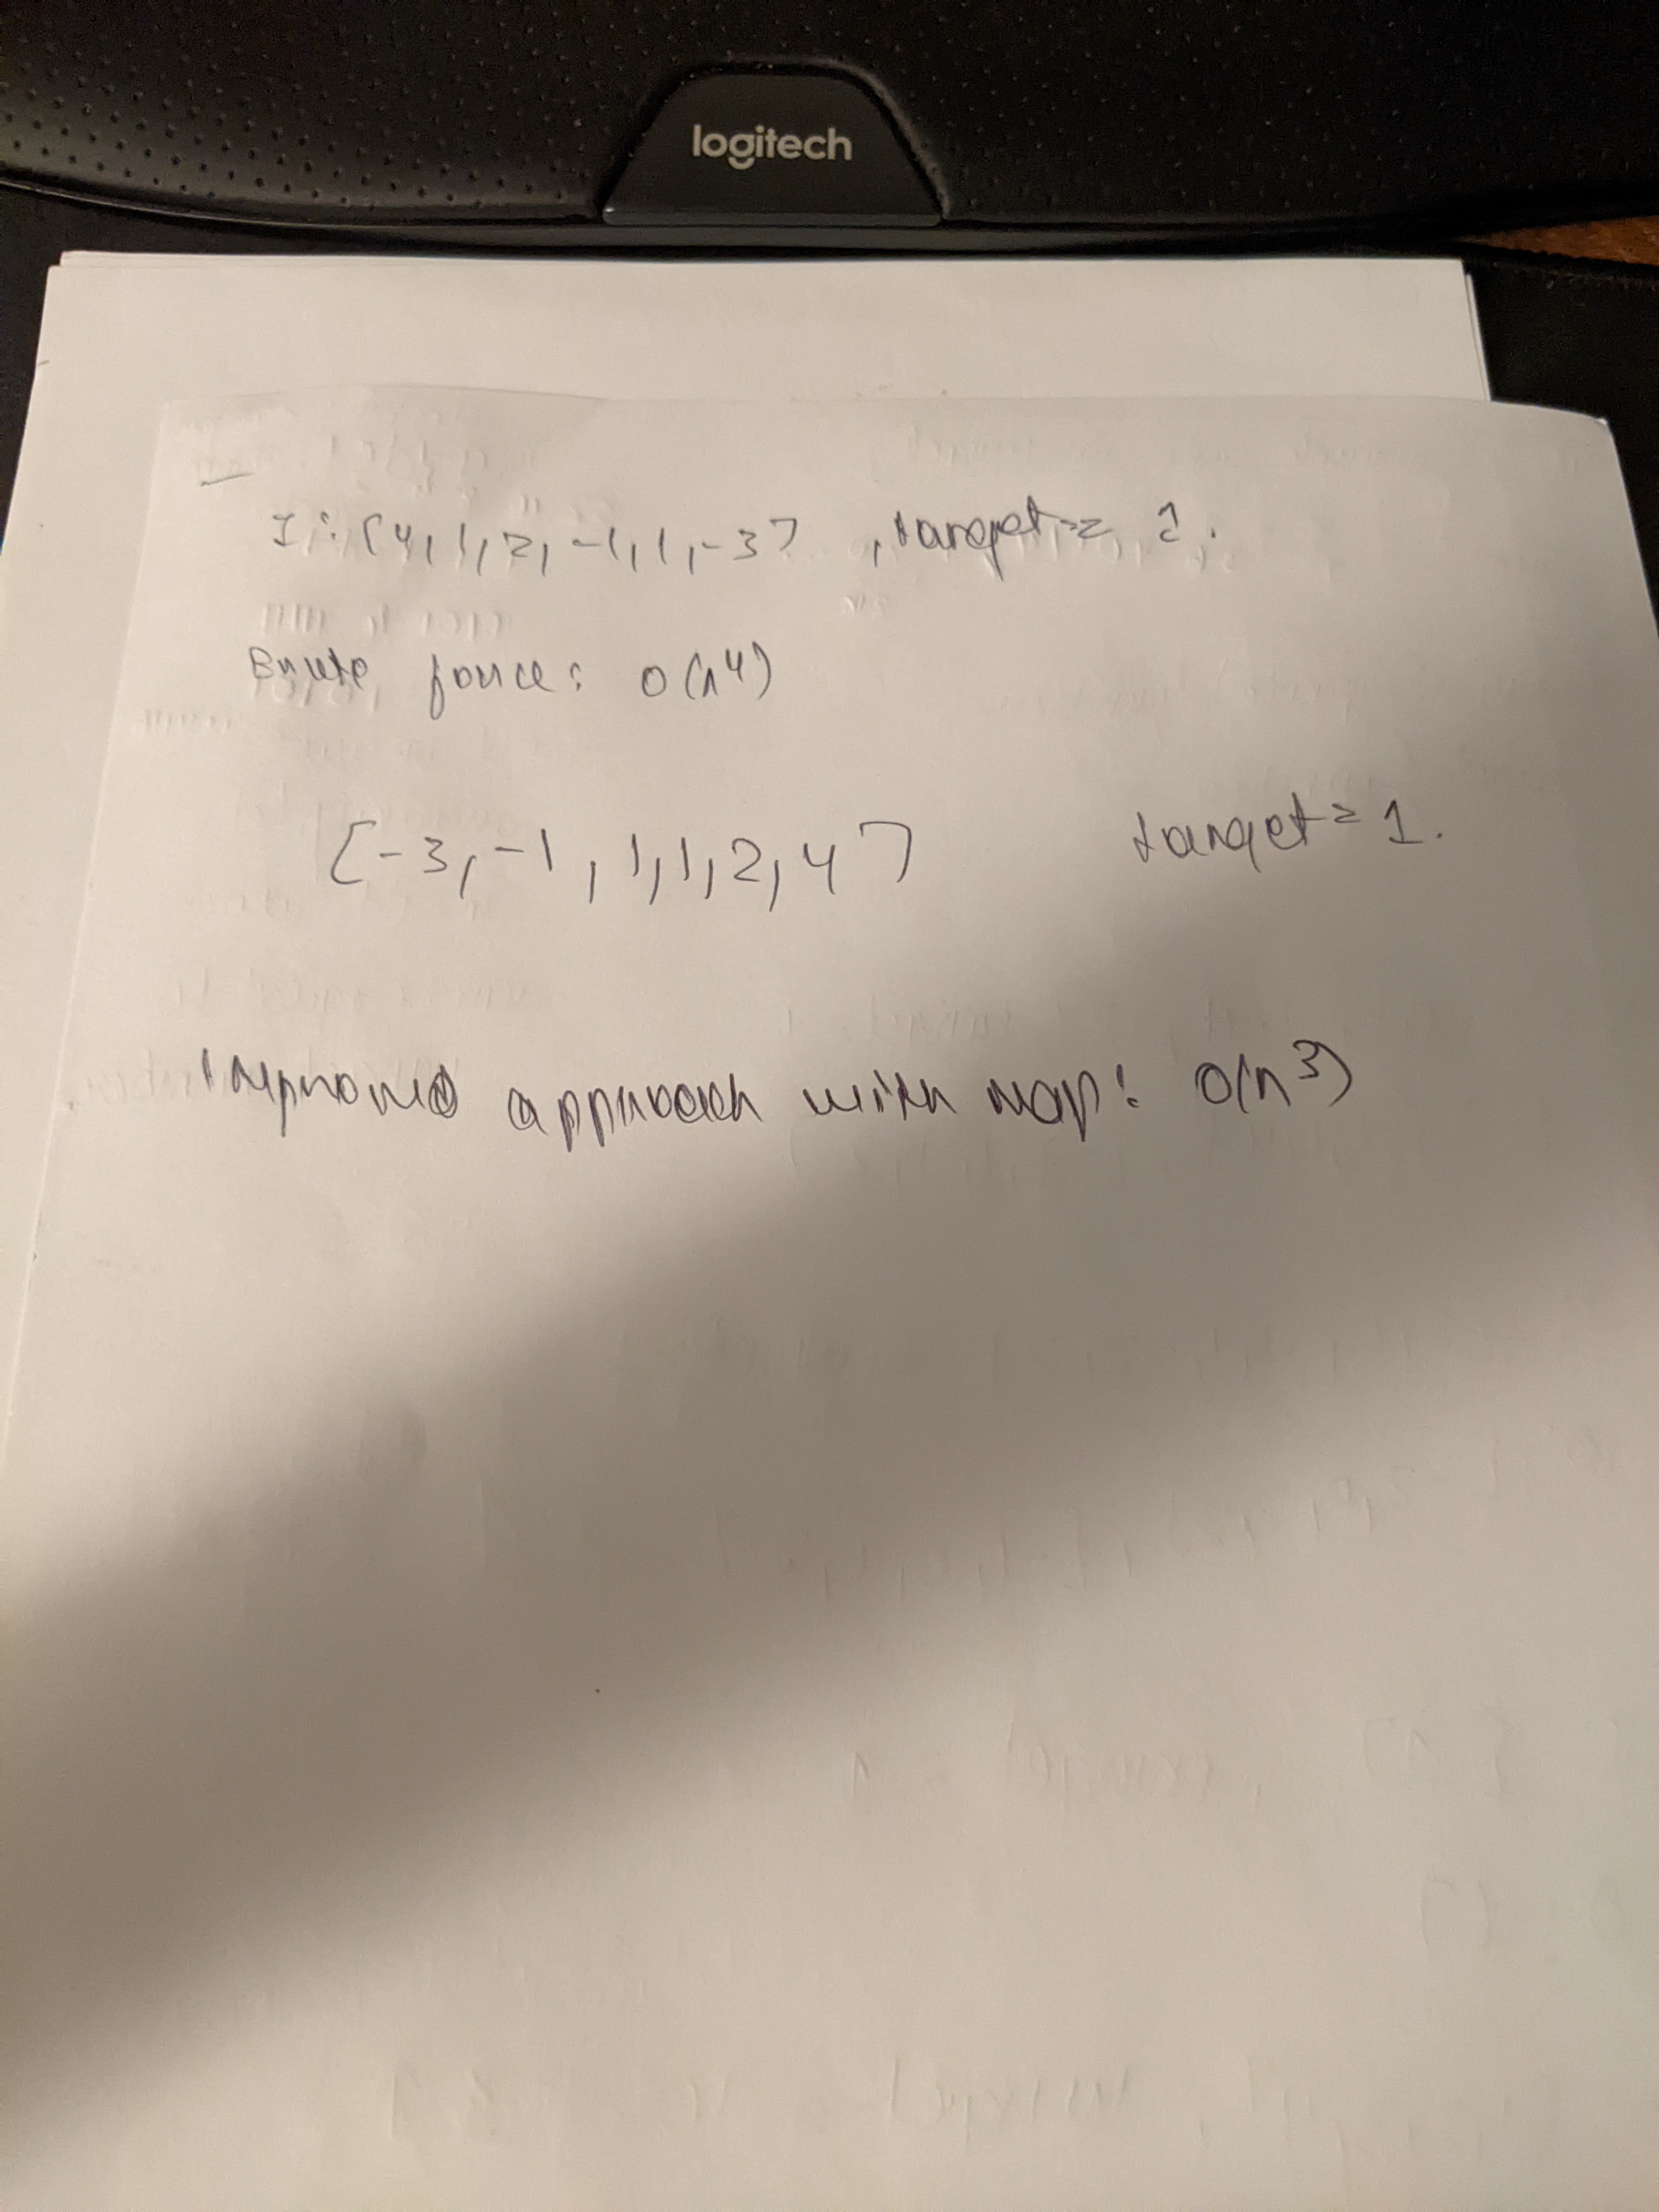 logitech
I: [4, 1, 2, -1, 1, -3] , target = 1.
Brute force: O(n4)
[-3, -1, 1, 1, 2, 4] target = 1.
Improved approach with map: O(n3)